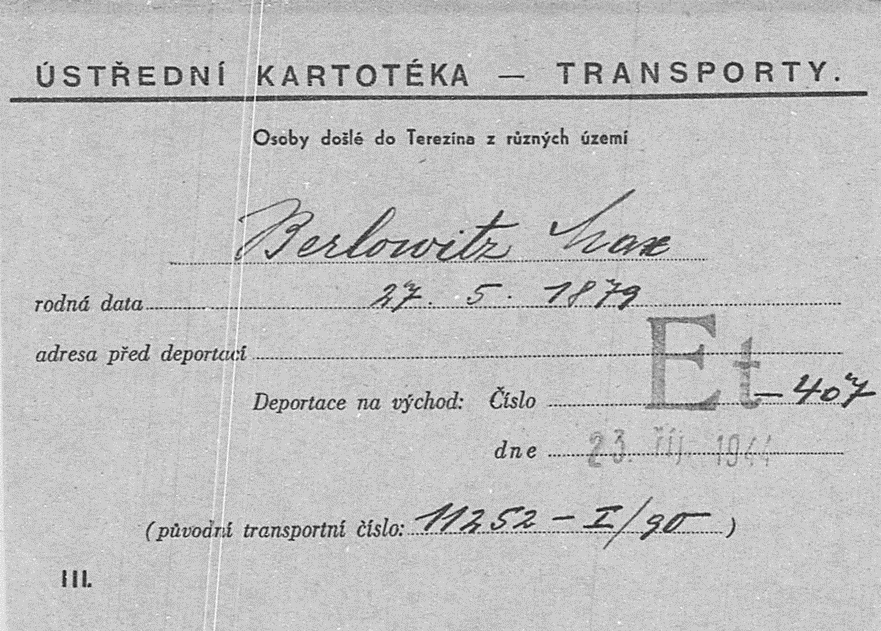 ÚSTŘEDNÍ KARTOTÉKA — TRANSPORTY.
Osoby došlé do Terezína z různých území
Berlowitz Max
rodná data 27. 5. 1879
adresa před deportací
Deportace na východ: Číslo Et – 407
dne 23. říj. 1944
(původní transportní číslo: 11252 – I/90)
III.